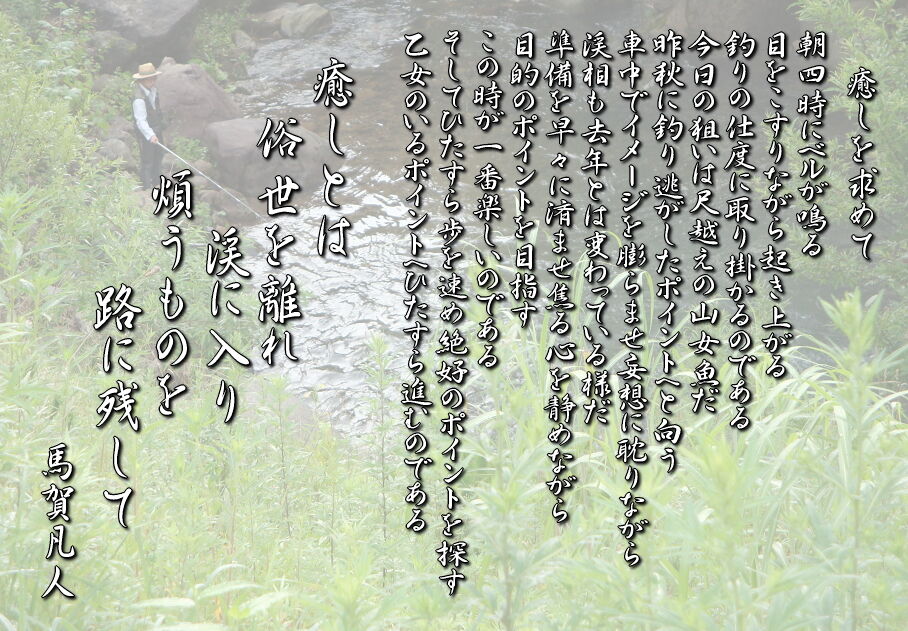 癒しを求めて
朝四時にベルが鳴る
目をこすりながら起き上がる
釣りの仕度に取り掛かるのである
今日の狙いは尺越えの山女魚だ
昨秋に釣り逃がしたポイントへと向う
車中でイメージを膨らませ妄想に耽りながら
渓相も去年とは変わっている様だ
準備を早々に済ませ焦る心を静めながら
目的のポイントを目指す
この時が一番楽しいのである
そしてひたすら歩を速め絶好のポイントを探す
乙女のいるポイントへひたすら進むのである
癒しとは
俗世を離れ
渓に入り
煩うものを
路に残して
馬賀凡人